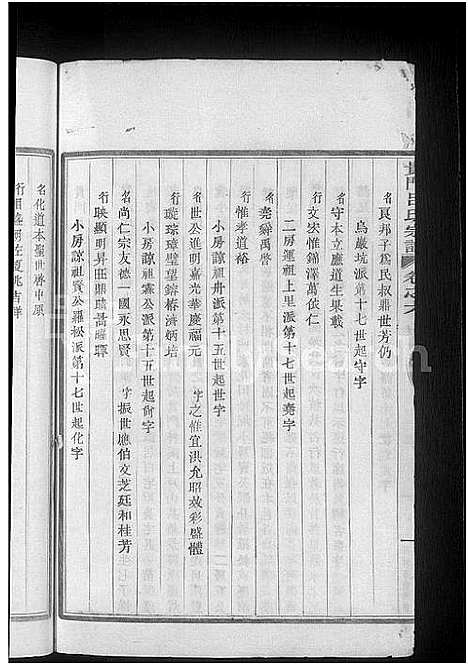 門呂氏宗譜 卷之六
名 良邦子爲民叔鼎世芳仍
烏巖坑派第十七世起守字
名 守本立應道生果載
行 文宏惟錦澤萬依仁
二房運祖上里派第十七世起堯字
名 堯舜禹啓
行 惟孝道裕
小房諒祖舟派第十五世起世字
名 世公進明嘉光華慶福元 字 之惟宜洪允昭效彩盛體
行 璇琮璋璧望榕椿濟炳培
小房諒祖霖公派第十五世起尙字
名 尙仁宗友德一國永思賢 字 振世應伯文芝廷和桂芳
行 映顯明昇旺鼎曦暠曜
小房諒祖賢公羅松派第十七世起化字
名 化道本聖世啓中原
行 相盛朝左夔兆吉祥